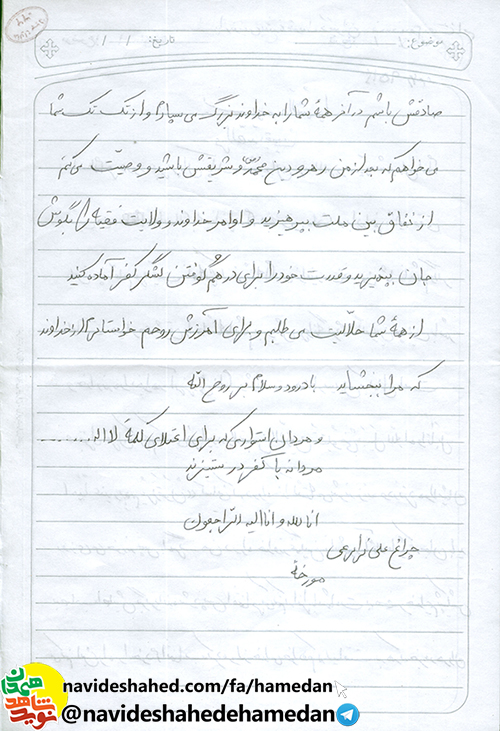 موضوع:
تاریخ: / /
صادقش باشم در آخر همهٔ شما را به خداوند بزرگ می سپارم و از تک تک شما
می خواهم که بعد از من رهرو دین محمد (ص) و شریفش باشید و وصیت می کنم
از نفاق بین ملت بپرهیزید و اوامر خداوند و ولایت فقیه را بگوش
جان بپذیرید و قدرت خود را برای در هم کوفتن لشگر کفر آماده کنید
از همهٔ شما حلالیت می طلبم و برای آمرزش روحم خواستارم از خداوند
که مرا ببخشاید با درود و سلام بر روح الله
و مردان استواری که برای اعتلای کلمهٔ لا اله ........
مردانه با کفر در ستیزند
انا لله و انا الیه راجعون
چراغ علی
مورخهٔ
نوید شاهد همدان
navideshahed.com/fa/hamedan
@navideshahedehamedan